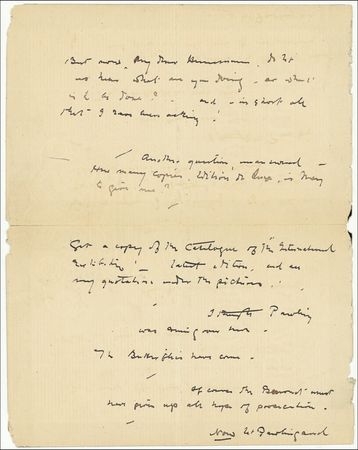 But now, my dear Heinemann, do let
us hear what are you doing - or what
is to be done? - and - in short all
that I have been asking!
Another question unanswered -
How many copies, Edition de Luxe, is
to give me?
Get a copy of the Catalogue of the "International
Exhibition" - latest edition, and see
my quotations under the pictures!
Pawling
was coming over here.
The Butterflies have come.
Of course the must
have given up all hope of prosecution.
Now let Pawling and